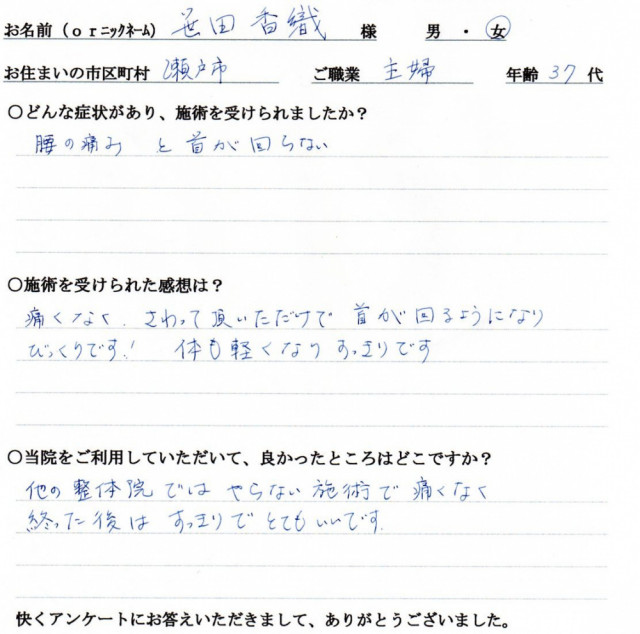 お名前（orニックネーム） 笹田 香織 様 男 ・ 女
お住まいの市区町村 瀬戸市 ご職業 主婦 年齢 37 代
○どんな症状があり、施術を受けられましたか？
腰の痛み と 首が回らない
○施術を受けられた感想は？
痛くなく、さわって頂いただけで 首が回るようになり
びっくりです！ 体も軽くなり すっきりです
○当院をご利用していただいて、良かったところはどこですか？
他の整体院では やらない施術で 痛くなく
終った後は すっきりで とてもいいです。
快くアンケートにお答えいただきまして、ありがとうございました。